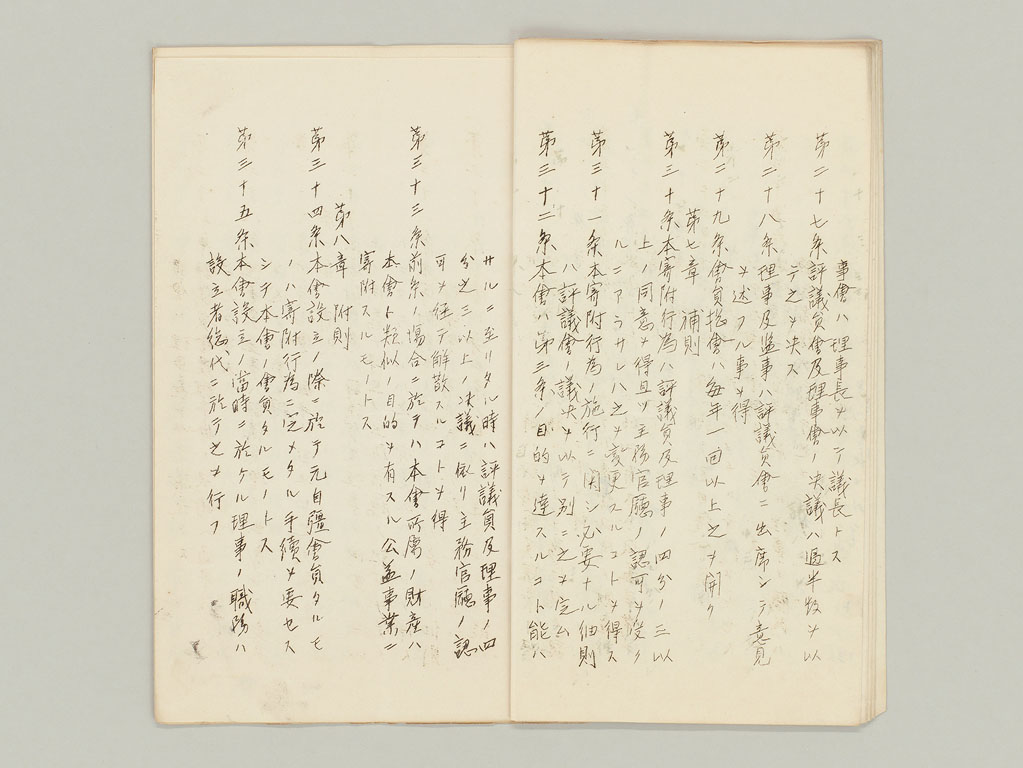 事會ハ理事長ヲ以テ議長トス
第二十七条評議員會及理事會ノ決議ハ過半数ヲ以
テ之ヲ決ス
第二十八条理事及監事ハ評議員會ニ出席シテ意見
ヲ述フル事ヲ得
第二十九条會員総會ハ毎年一回以上之ヲ開ク
第七章 補則
第三十条本寄附行為ハ評議員及理事ノ四分ノ三以
上ノ同意ヲ得且ツ主務官廳ノ認可ヲ受ク
ルニアラサレハ之ヲ変更スルコトヲ得ス
第三十一条本寄附行為ノ施行ニ関シ必要ナル細則
ハ評議會ノ議決ヲ以テ別ニ之ヲ定ム
第三十二条本會ハ第三条ノ目的ヲ達スルコト能ハ
サルニ至リタル時ハ評議員及理事ノ四
分之三以上ノ決議ニ依リ主務官廳ノ認
可ヲ経テ解散スルコトヲ得
第三十三条前条ノ場合ニ於テハ本會所属ノ財産ハ
本會ト類似ノ目的ヲ有スル公益事業ニ
寄附スルモノトス
第八章 附則
第三十四条本會設立ノ際ニ於テ元自彊會員タルモ
ノハ寄附行為ニ定メタル手續ヲ要セス
シテ本會ノ會員タルモノトス
第三十五条本會設立ノ當時ニ於ケル理事ノ職務ハ
設立者総代ニ於テ之ヲ行フ